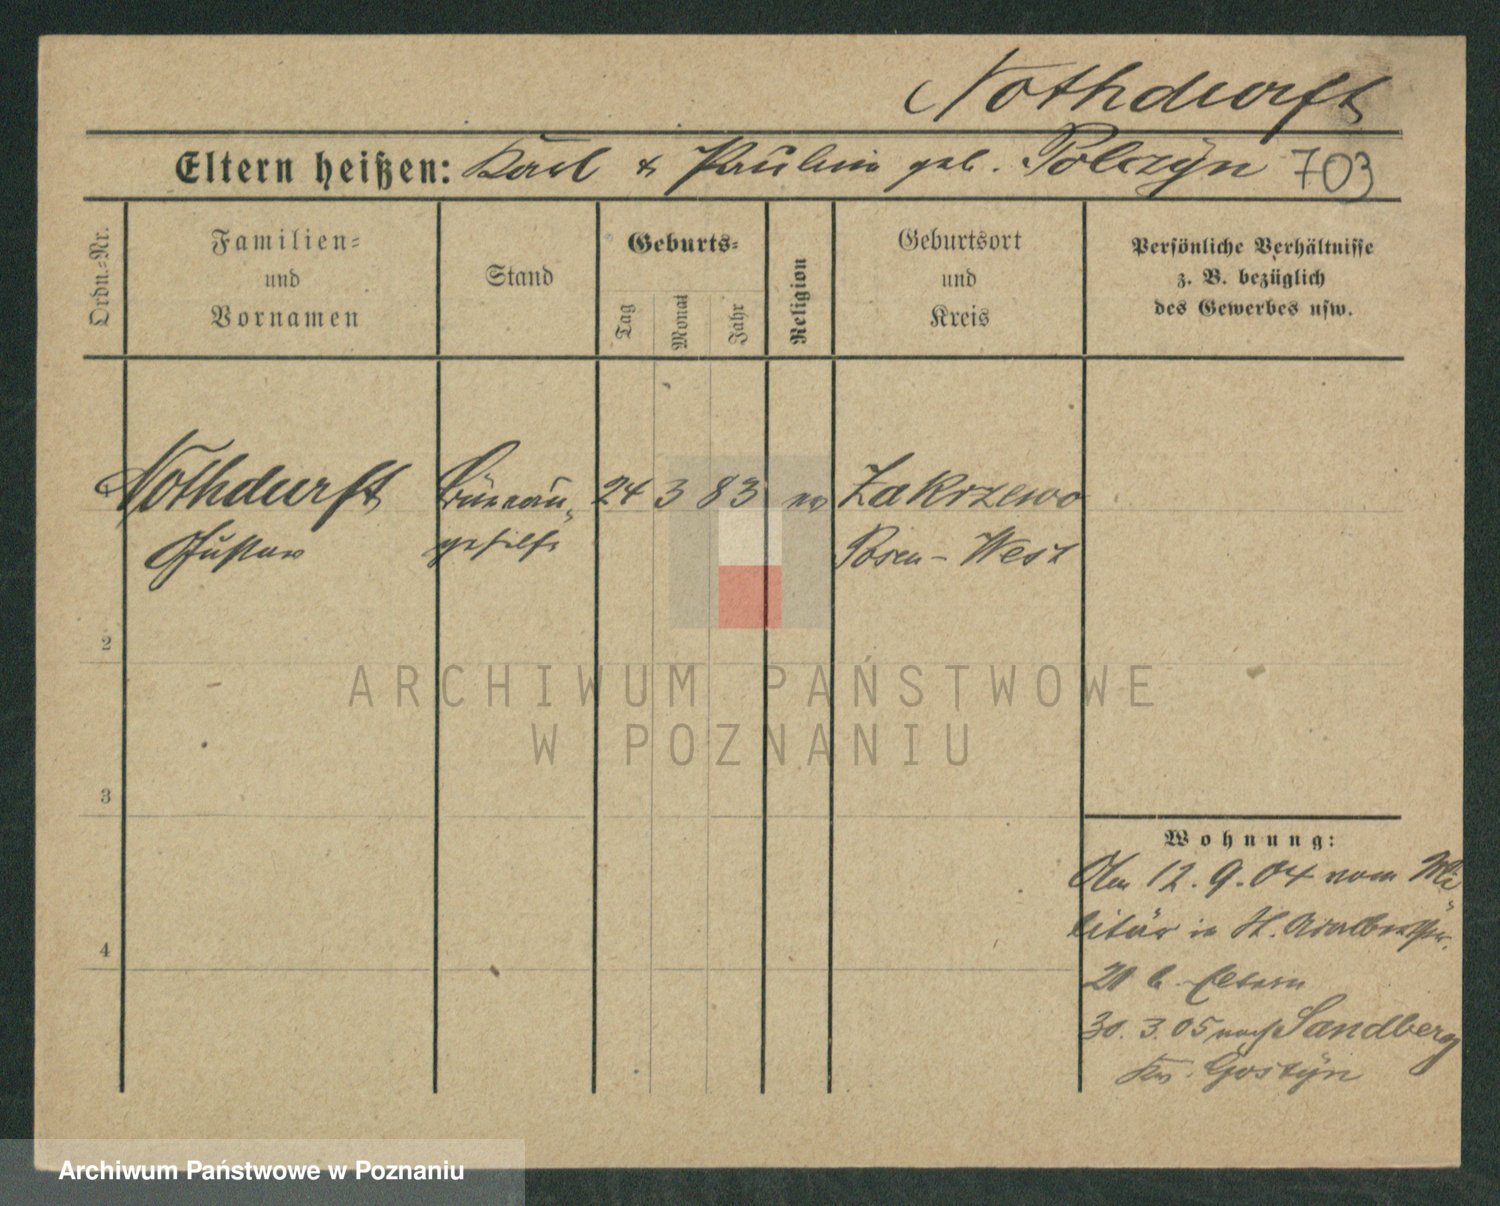 Nothdurft
Eltern heißen: Karl & Pauline geb. Polczyn 703
Ordn.-Nr.
Familien-
und
Vornamen
Stand
Geburts-
Tag
Monat
Jahr
Religion
Geburtsort
und
Kreis
Persönliche Verhältnisse
z. B. bezüglich
des Gewerbes usw.
Nothdurft Büreau- 24 3 83 ev Zakrzewo
Gustav gehilfe Posen-West
2
ARCHIWUM PAŃSTWOWE
W POZNANIU
3
Wohnung:
Am 12.9.04 vom Mi-
litär in St. Adalbertstr.
4
20 b. Eltern
30.3.05 nach Sandberg
Kr. Gostyn
Archiwum Państwowe w Poznaniu